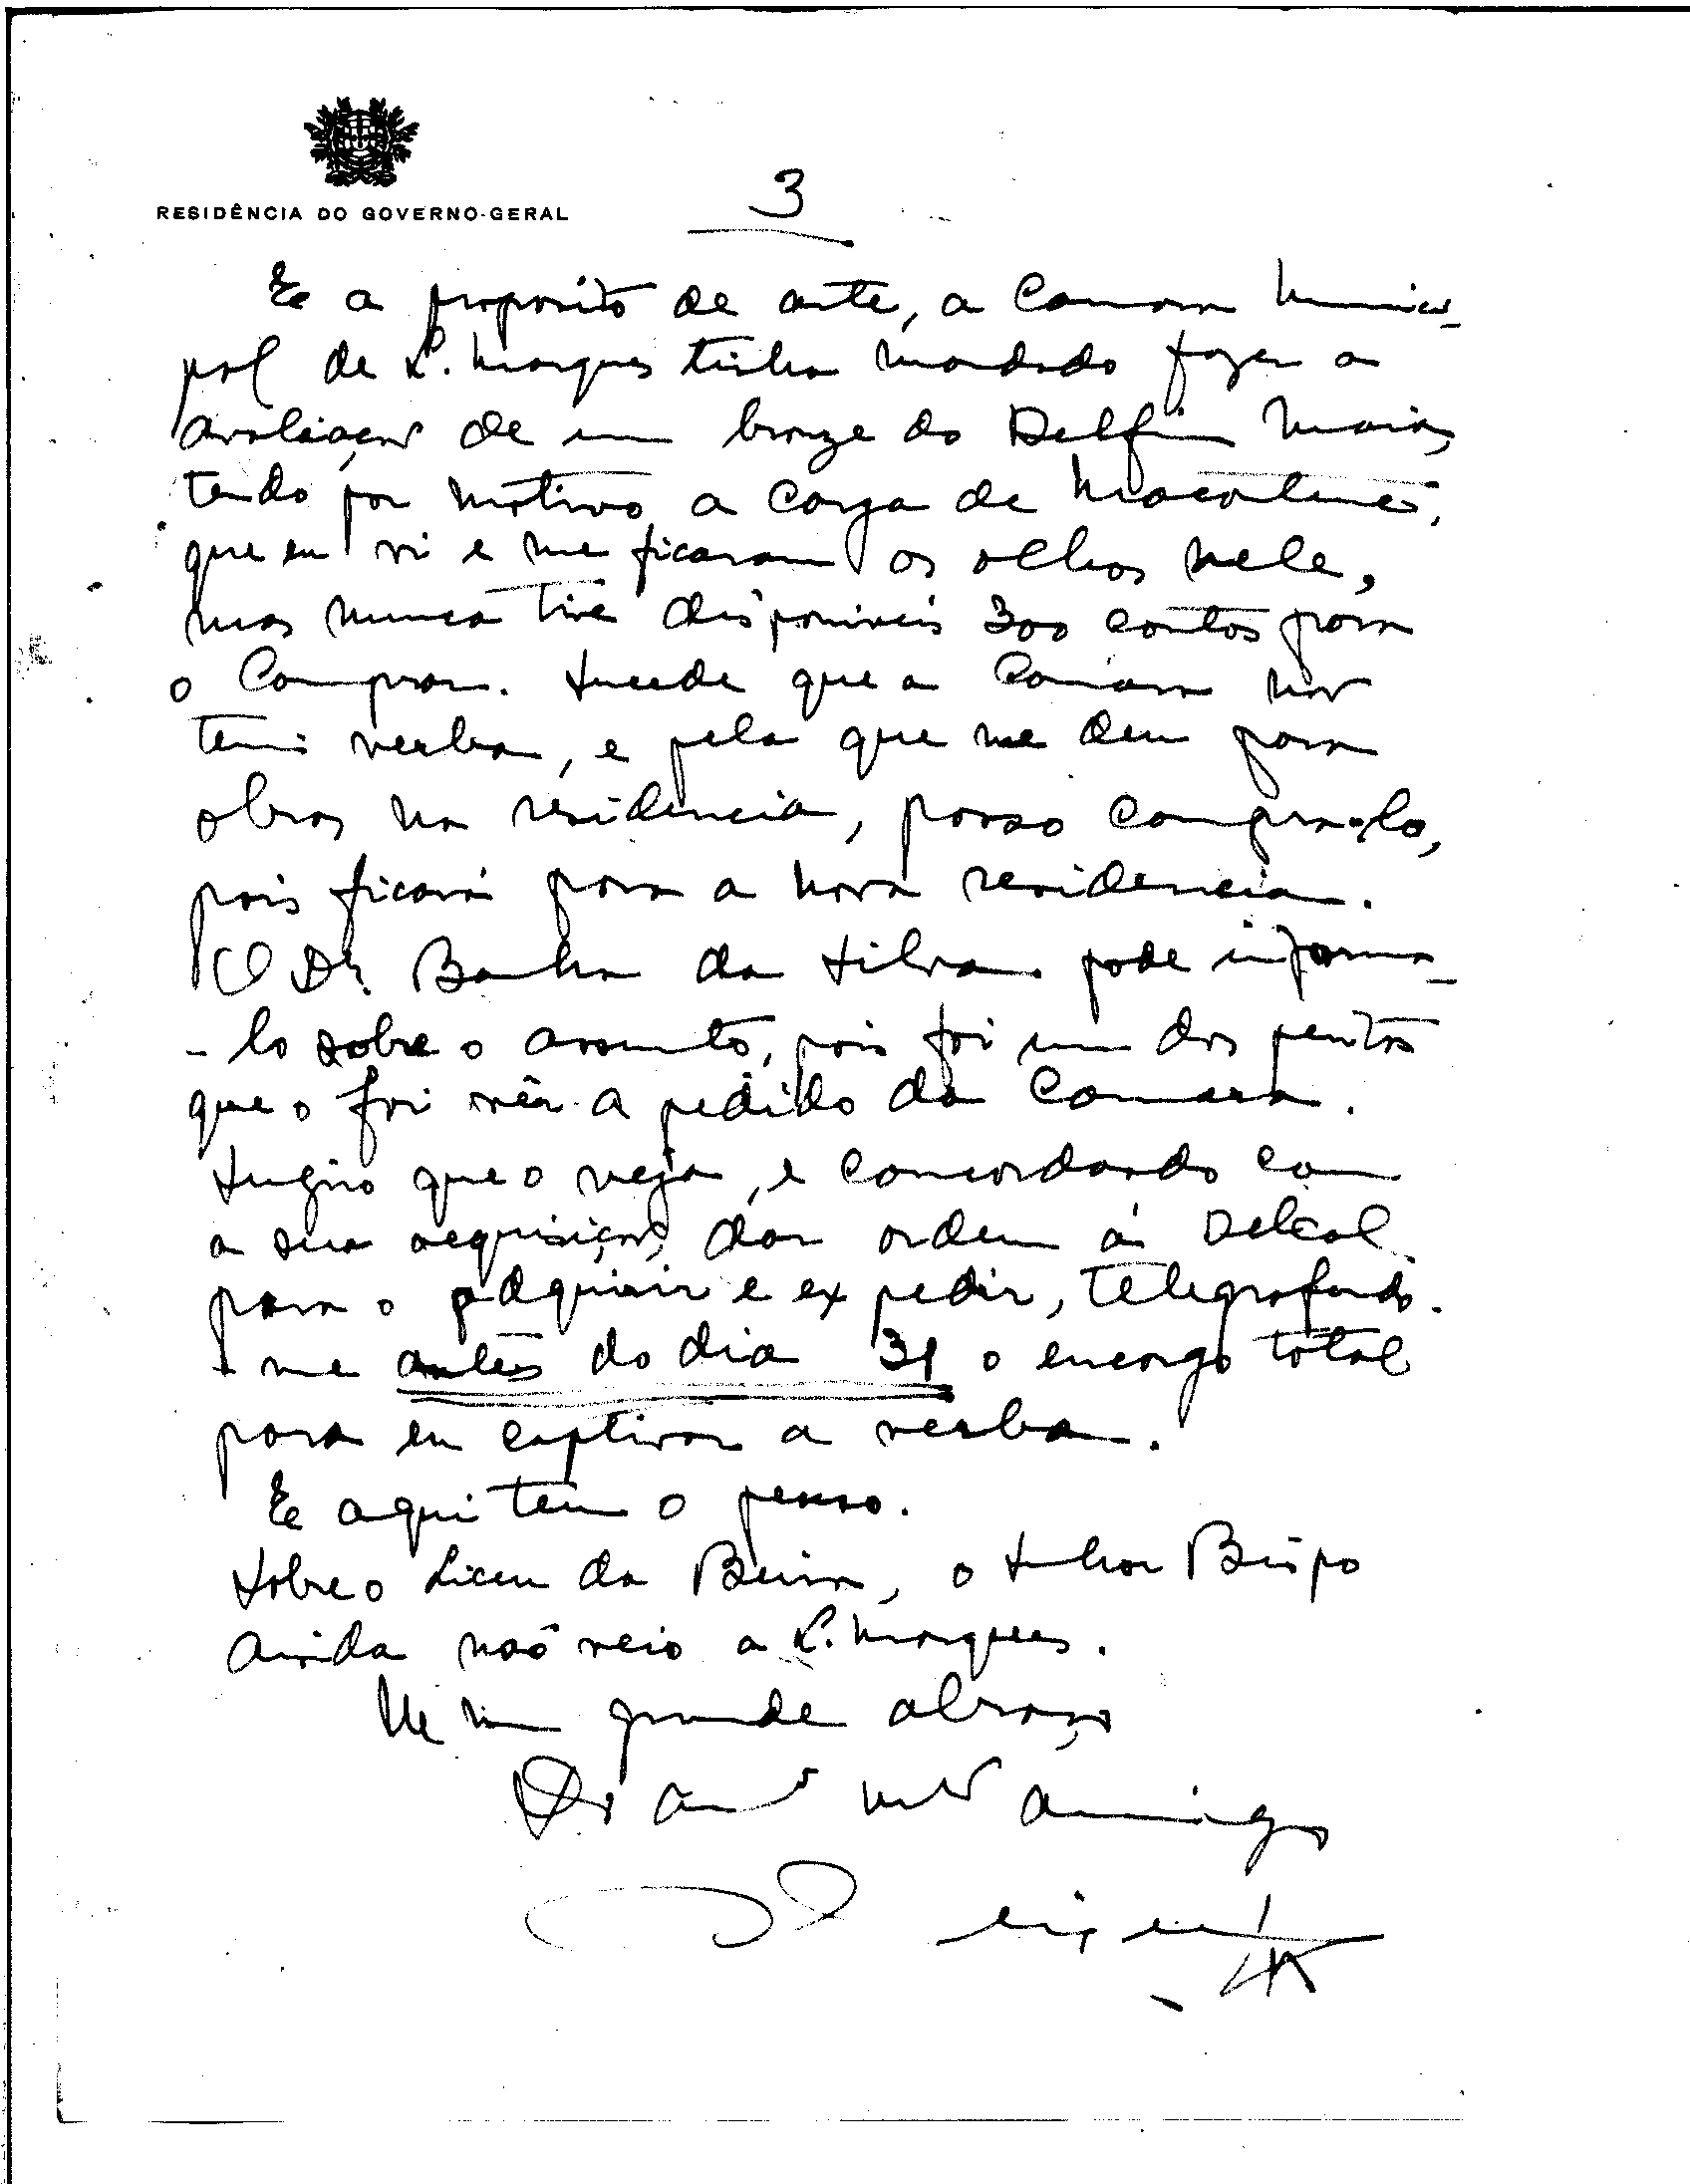 RESIDÊNCIA DO GOVERNO-GERAL
3
E a proposito de arte, a Camara Munici-
pal de L. Marques tinha mandado fazer a
avaliação de um bronze do Delfim Maia,
tendo por motivo a carga de Macontene,
que eu vi e me ficaram os olhos nele,
mas nunca tive disponiveis 300 contos para
o comprar. Sucede que a Camara não
tem verba, e pela que me deu para
obras na residencia, posso compra-lo,
pois ficará para a nova residencia.
O Dr. Banha da Silva pode informa-
-lo sobre o assunto, pois foi um dos peritos
que o foi vêr a pedido da Camara.
Sugiro que o veja, e concordando com
a sua aequisição, dar ordem á
para o adquirir e expedir, telegrafando-
-me antes do dia 31 o encargo total
para eu captivar a verba.
E aqui tem o penso.
Sobre o Liceu da Beira, o Senhor Bispo
ainda não veio a L. Marques.
Um grande abraço
Do amº mtº amigo